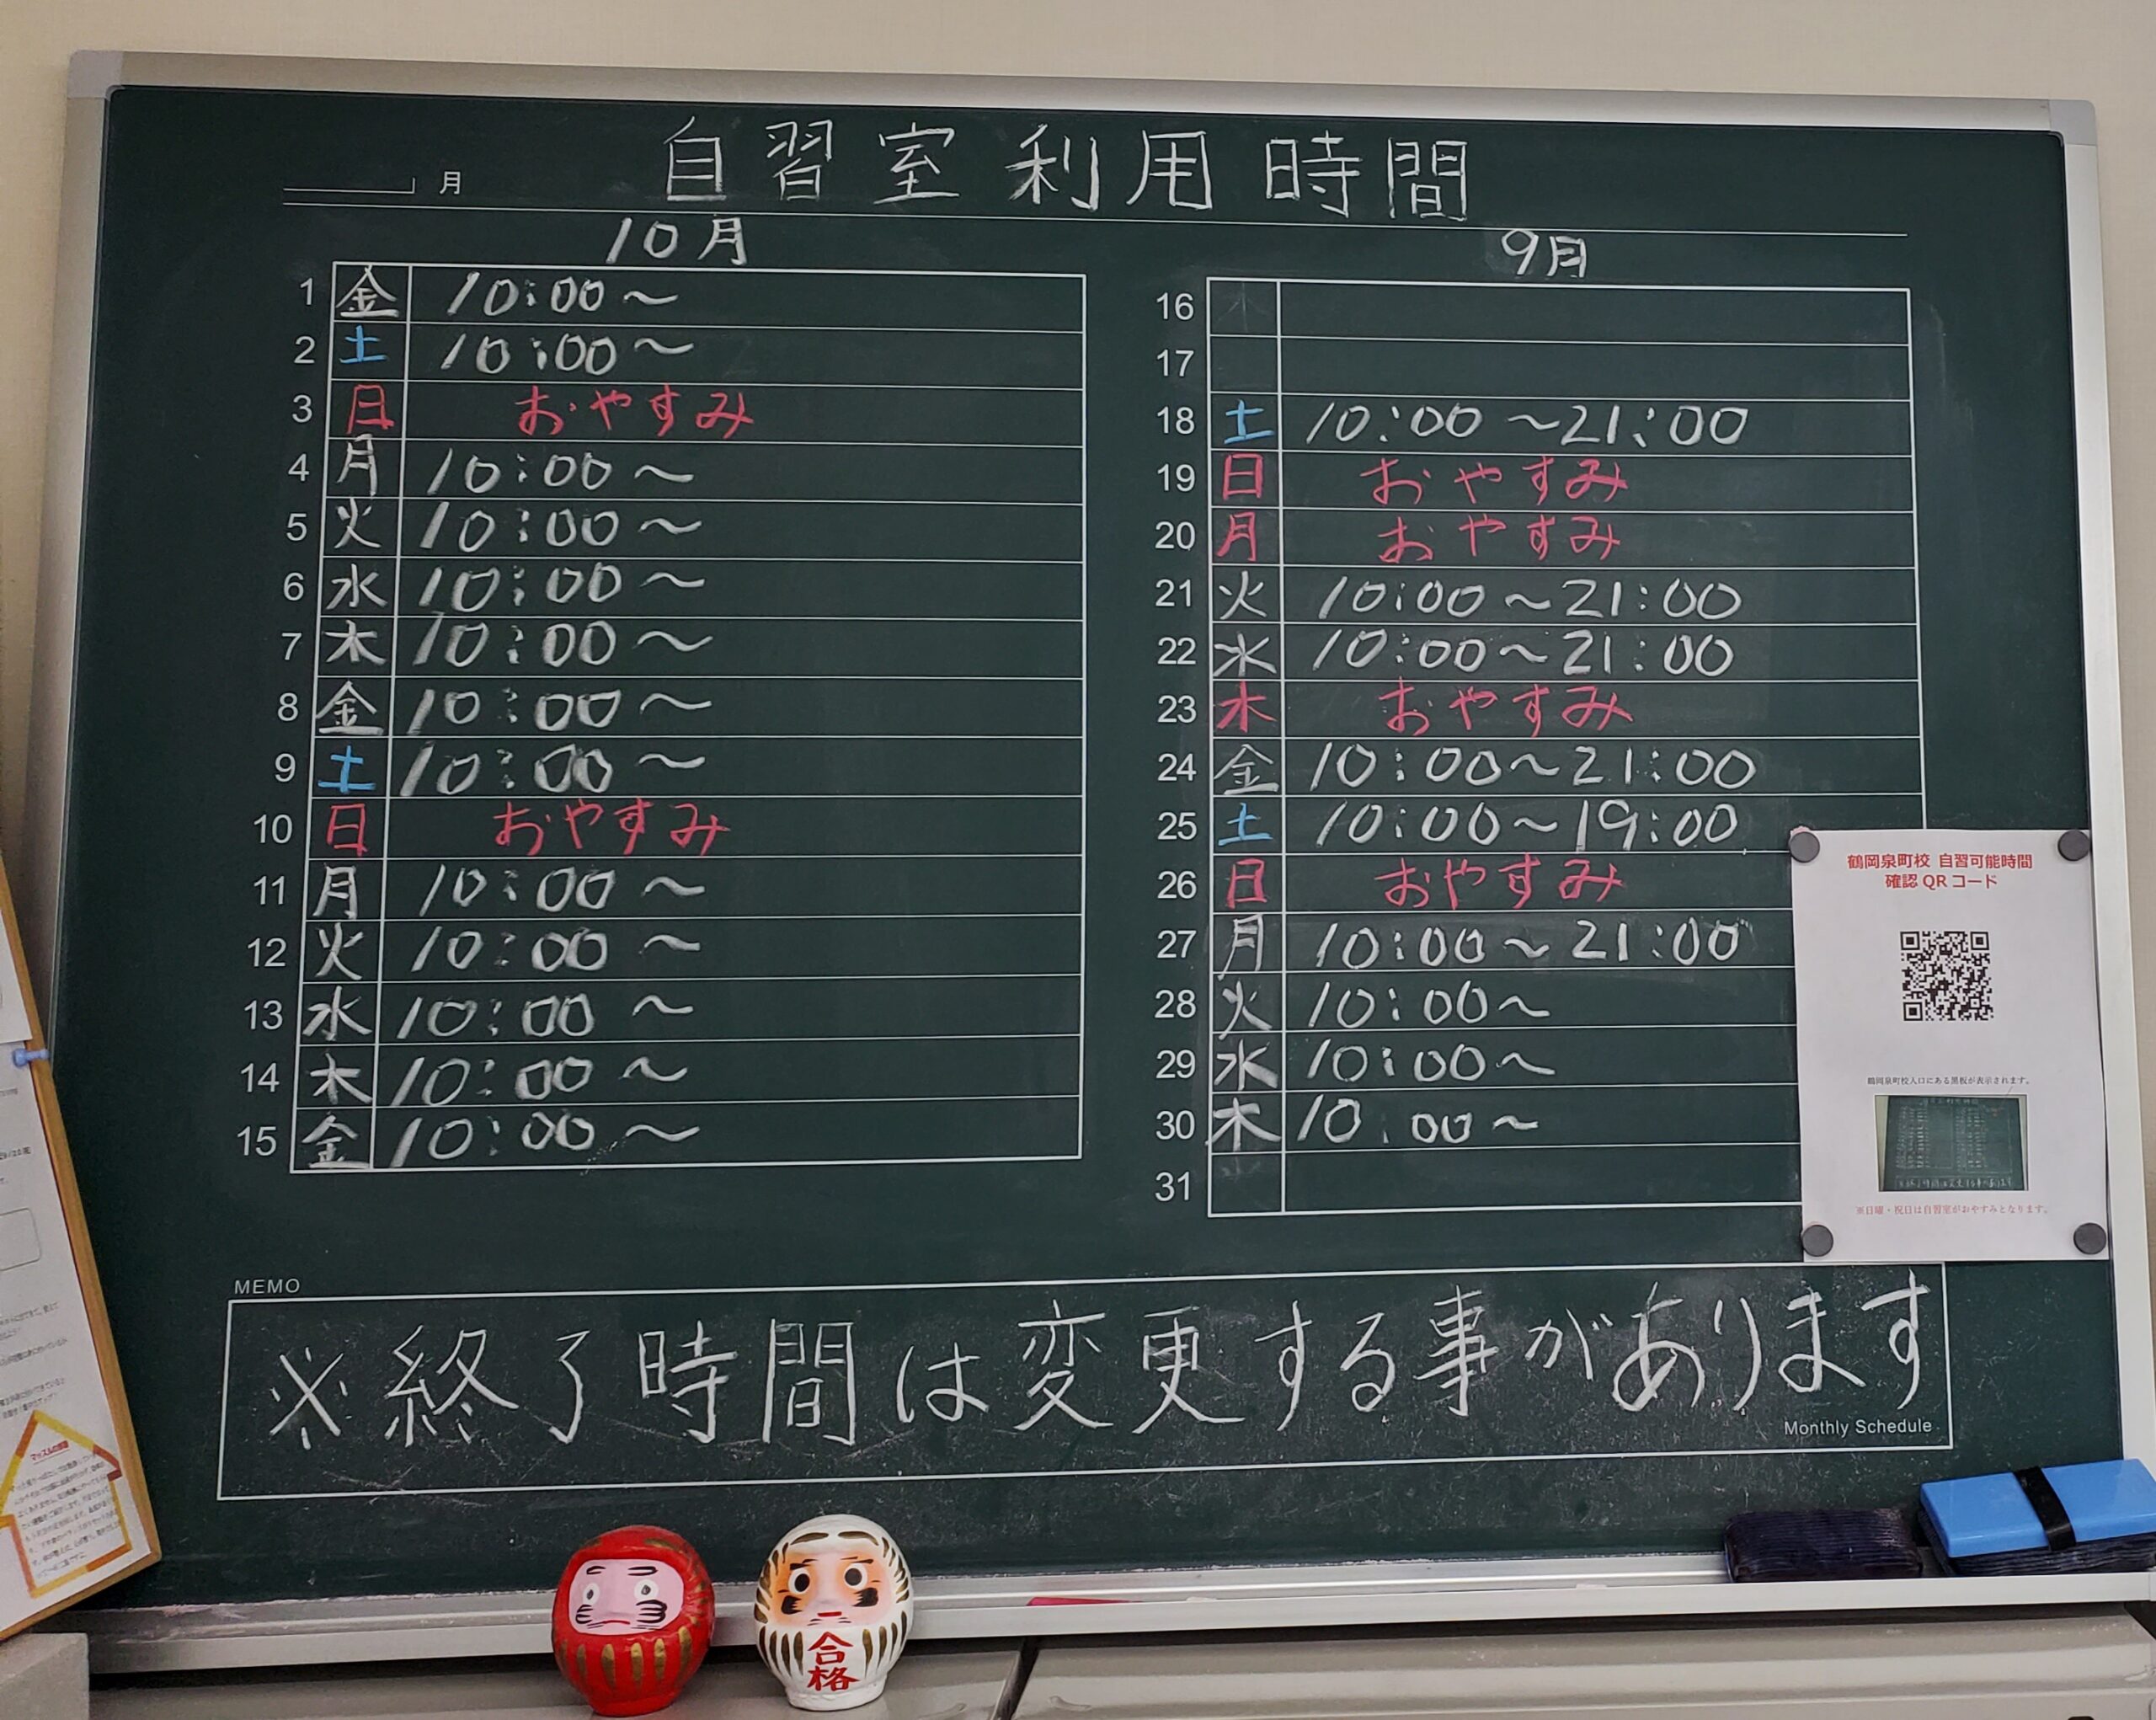 自習室利用時間
月
10月
1 金 10:00～
2 土 10:00～
3 日 おやすみ
4 月 10:00～
5 火 10:00～
6 水 10:00～
7 木 10:00～
8 金 10:00～
9 土 10:00～
10 日 おやすみ
11 月 10:00～
12 火 10:00～
13 水 10:00～
14 木 10:00～
15 金 10:00～
9月
16
17
18 土 10:00～21:00
19 日 おやすみ
20 月 おやすみ
21 火 10:00～21:00
22 水 10:00～21:00
23 木 おやすみ
24 金 10:00～21:00
25 土 10:00～19:00
26 日 おやすみ
27 月 10:00～21:00
28 火 10:00～
29 水 10:00～
30 木 10:00～
31
鶴岡泉町校 自習可能時間
確認QRコード
鶴岡泉町校入口にある黒板が表示されます。
※日曜・祝日は自習室がおやすみとなります。
MEMO
※終了時間は変更する事があります
Monthly Schedule
合格